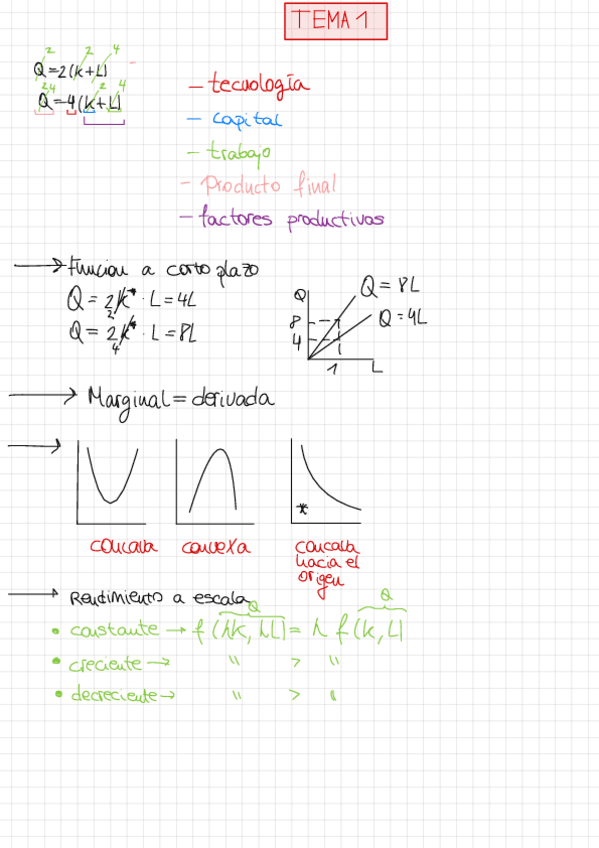 TEMA 1
2 2 4
Q=2(k+L)
24 2 4
Q=4(k+L)
- tecnología
- capital
- trabajo
- Producto final
- factores productivos
→ Funcion a corto plazo
Q = 2k* · L = 4L
2
Q = 2k* · L = 8L
4
Q
Q = 8L
Q = 4L
8
4
1
L
→ Marginal = derivada
→
*
concava
convexa
concava
hacia el
origen
→ Rendimiento a escala
Q Q
• constante → f (λk, λL) = λ f (k, L)
• creciente → " > "
• decreciente → " > "